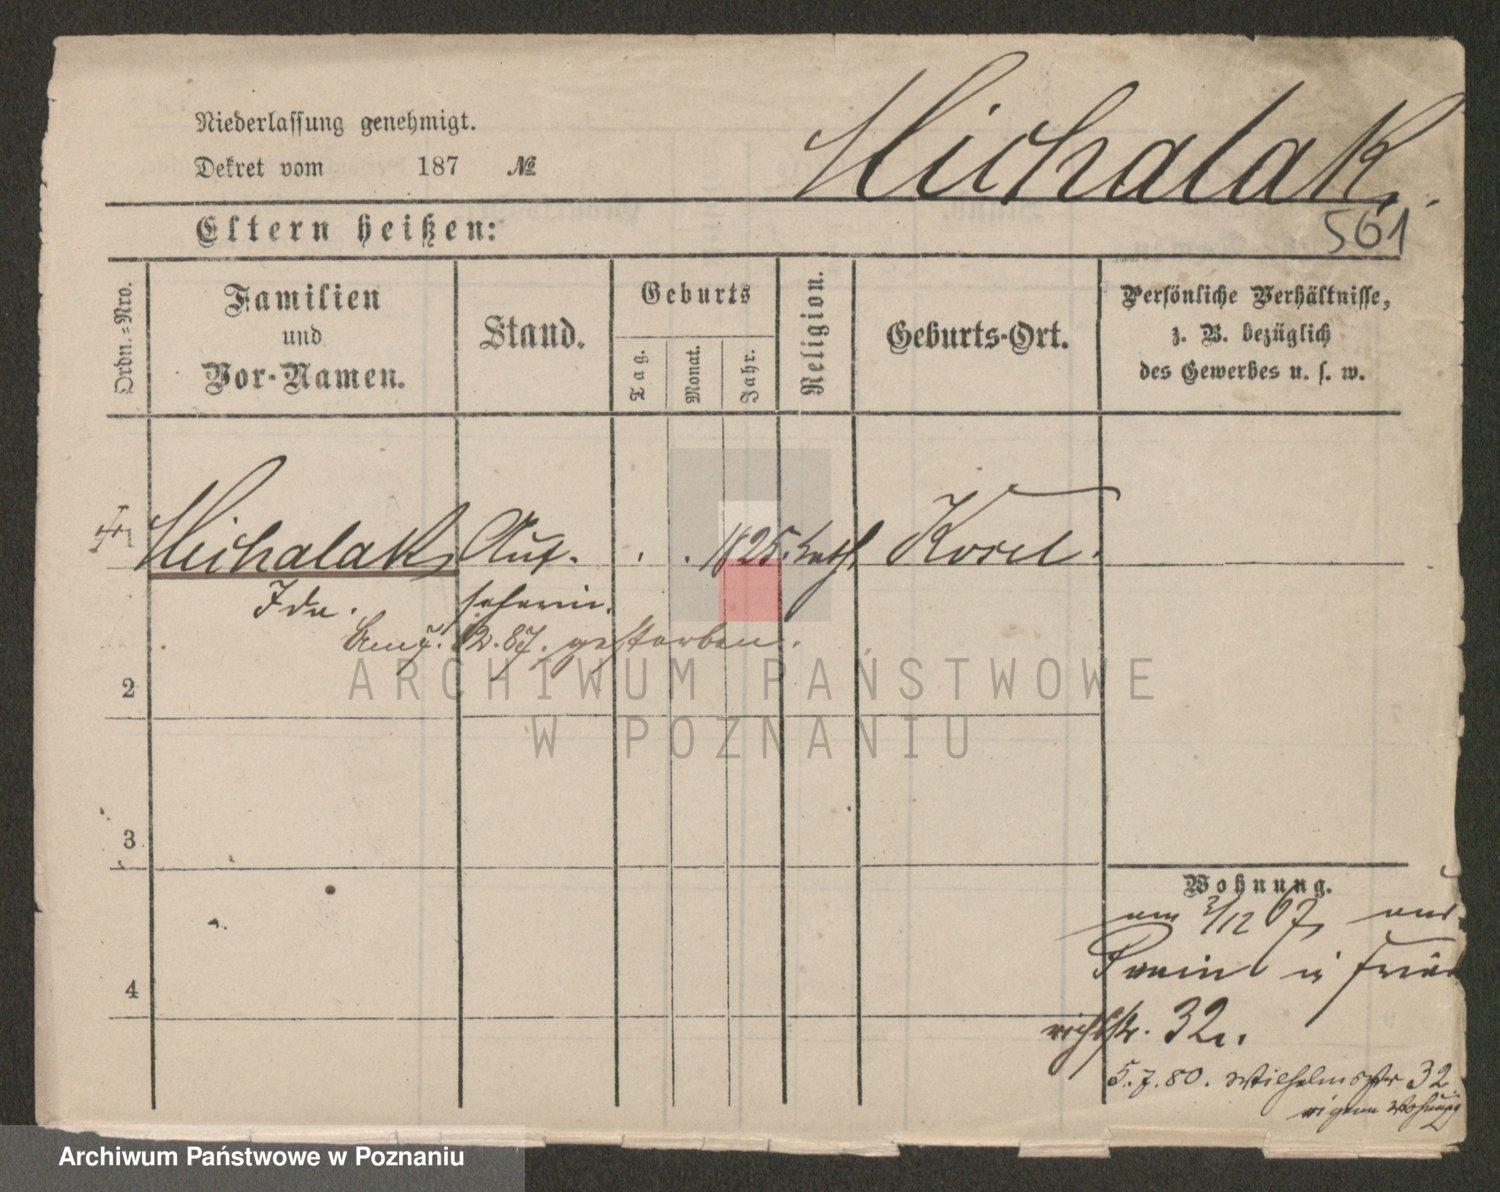 Niederlassung genehmigt.
Dekret vom 187 №
Michalak.
561
Eltern heißen:
Ordn.=Nro.
Familien
und
Vor-Namen.
Stand.
Geburts
Tag.
Monat.
Jahr.
Religion.
Geburts-Ort.
Persönliche Verhältnisse,
z. B. bezüglich
des Gewerbes u. s. w.
1 Michalak Auf- . . 1825. kath. Kosel.
Ida. seherin.
2.87. gestorben.
2
3
4
Wohnung.
am 3/12 67, aus
in Fried
richstr. 32.
5.7.80. Wilhelmstr 32
eigene Wohnung
ARCHIWUM PAŃSTWOWE
W POZNANIU
Archiwum Państwowe w Poznaniu